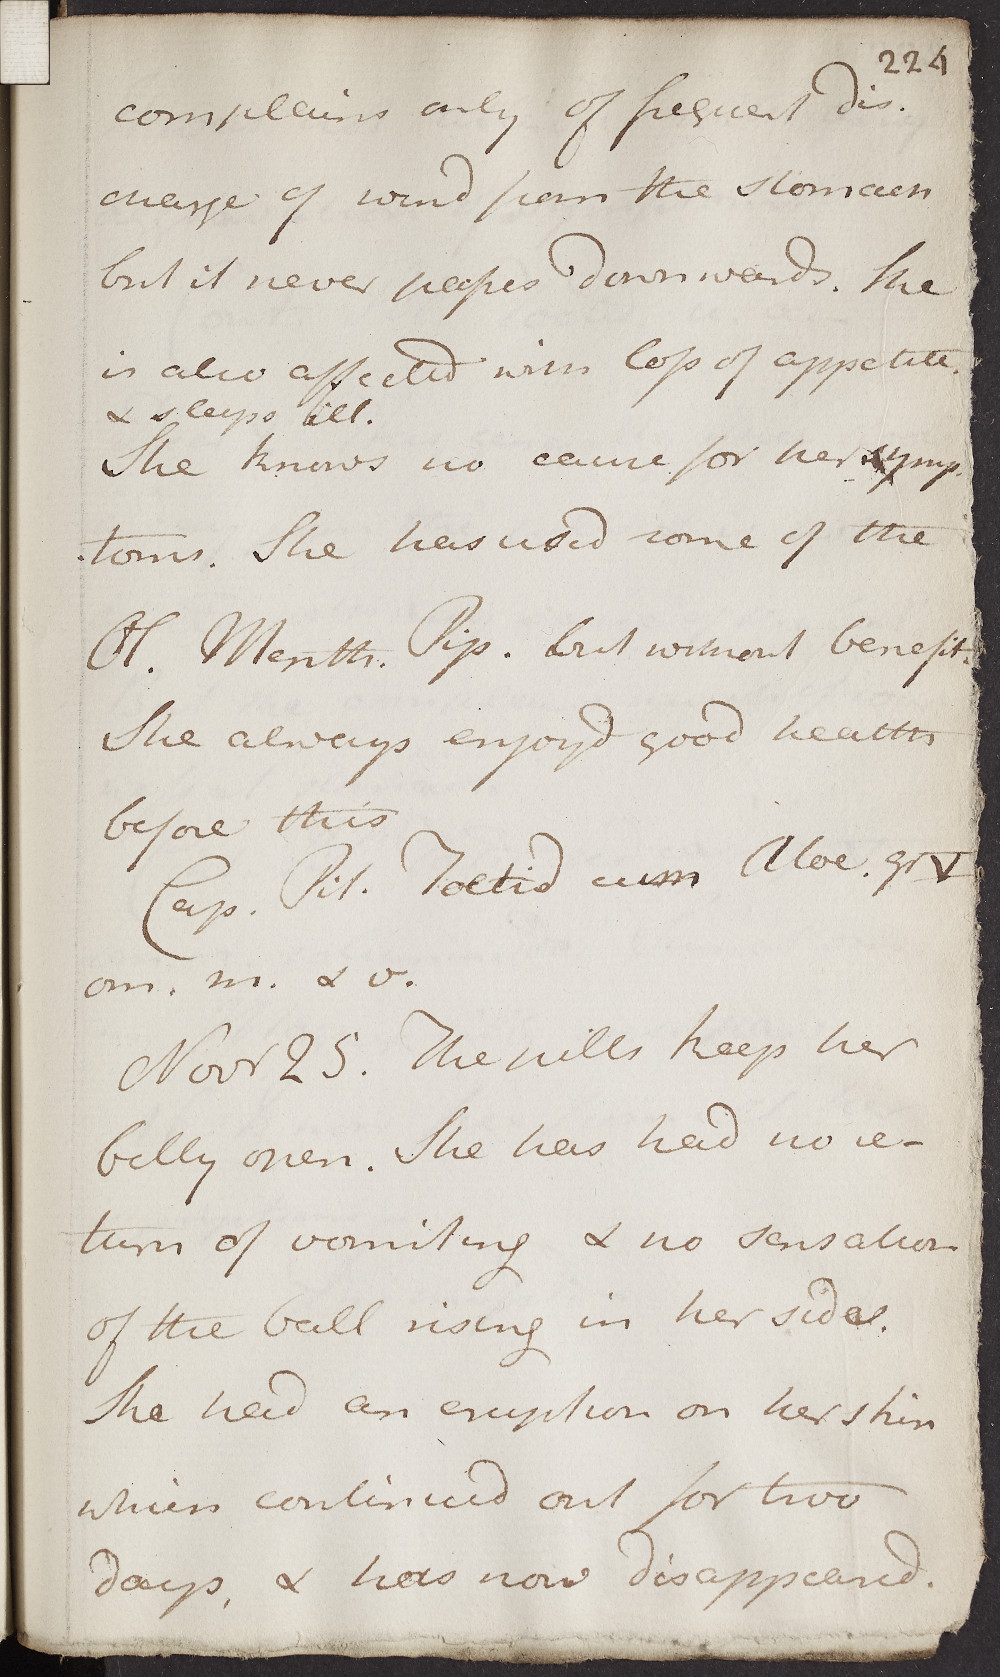 224
complains only of frequent dis.
charge of wind from the stomach
but it never passes downwards. She
is also affected with loss of appetite.
& sleeps ill.
She knows no cause for her symp.
toms. She has used some of the
Ol. Menth. Pip. but without benefit.
She always enjoy'd good health
before this
Cap. Pil. Foetid cum Aloe. gr V
om. m. & v.
Novr 25. The pills keep her
belly open. She has had no re-
turn of vomiting & no sensation
of the ball rising in her sides.
She had an eruption on her skin
which continued out for two
days, & has now disappeared.